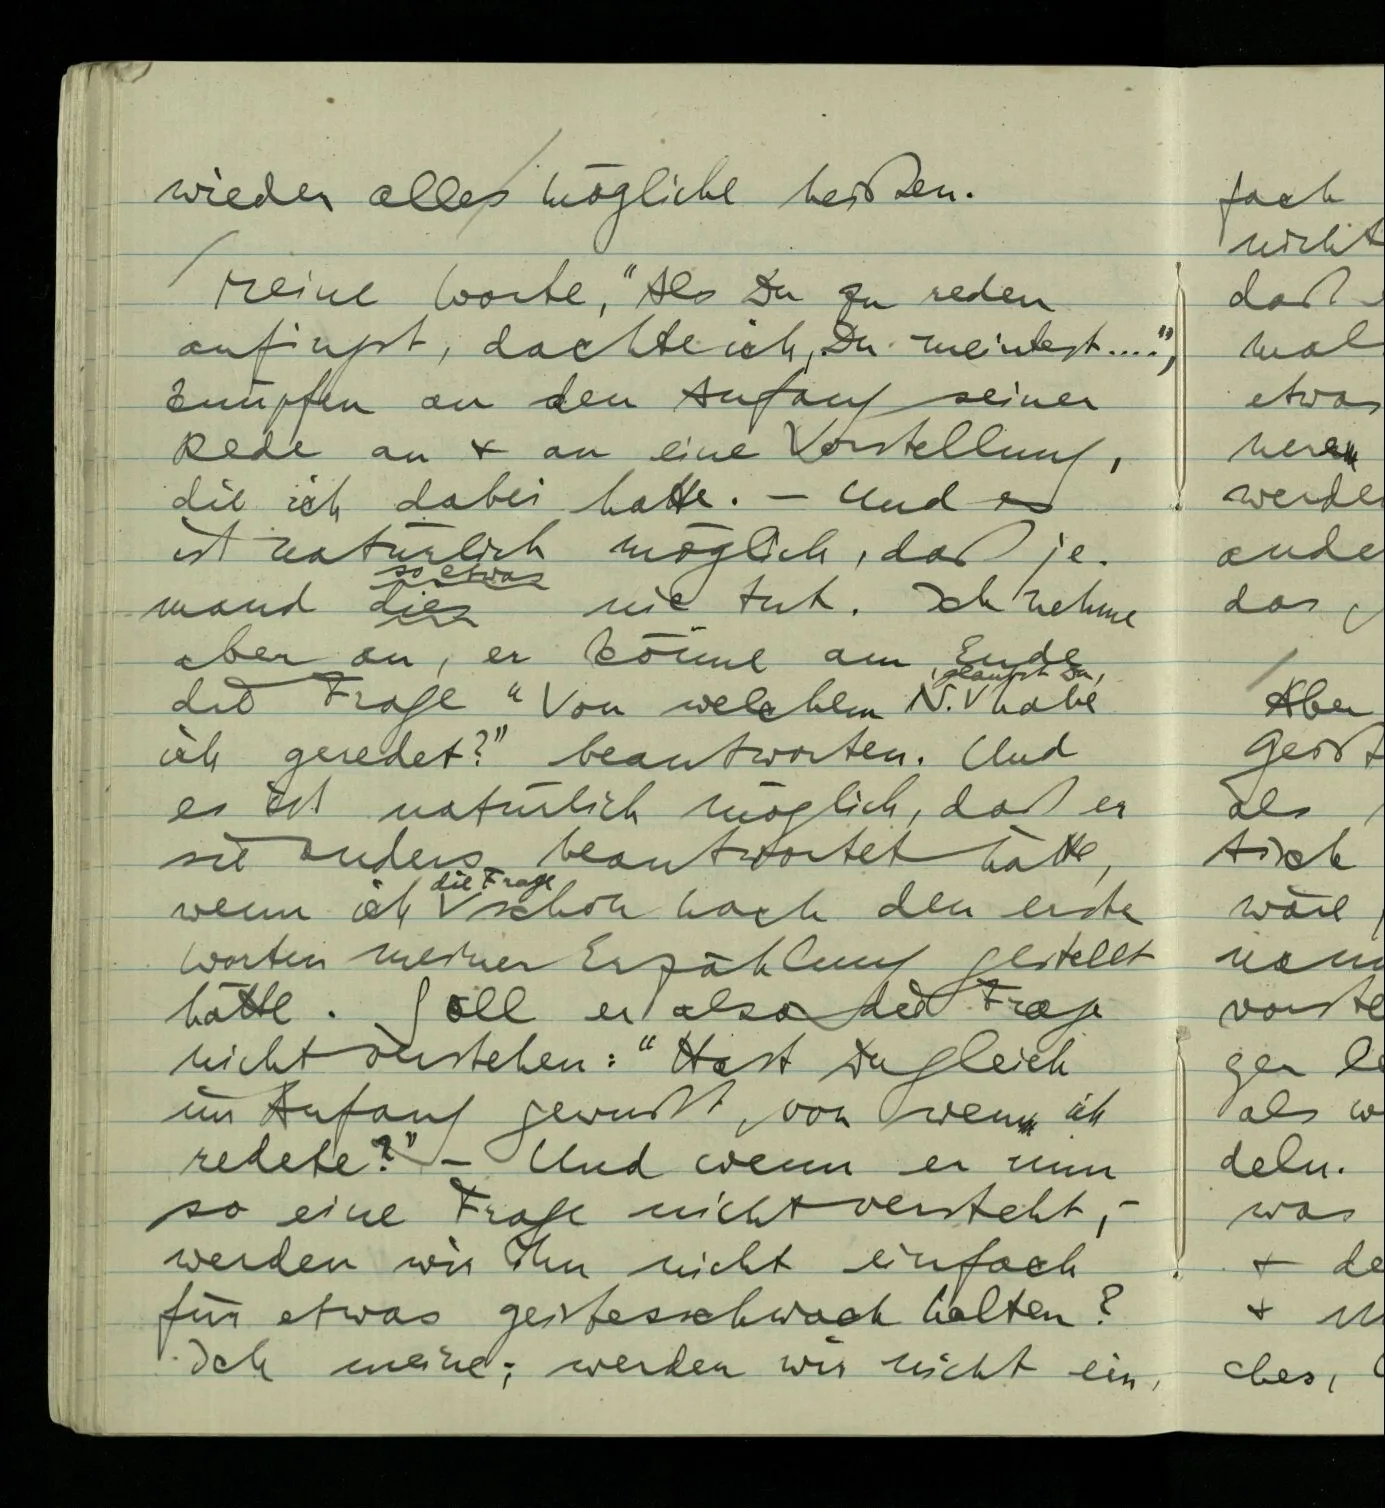 wieder alles mögliche heißen.
Meine Worte, "Als Du zu reden
anfingst, dachte ich, Du meintest....",
knüpfen an den Anfang seiner
Rede an & an eine Vorstellung,
die ich dabei hatte. – Und es
ist natürlich möglich, daß je-
so etwas
mand dies nie tut. Ich nehme
aber an, er könne am Ende
, glaubst Du,
die Frage "Von welchem N. habe
ich geredet?" beantworten. Und
es ist natürlich möglich, daß er
sie anders beantwortet hätte,
die Frage
wenn ich schon nach den erste
Worten meiner Erzählung gestellt
hätte. Soll er also die Frage
nicht verstehen: "Hast Du gleich
im Anfang gewußt, von wem ich
redete?" – Und wenn er nun
so eine Frage nicht versteht, –
werden wir ihn nicht einfach
für etwas geistesschwach halten?
Ich meine; werden wir nicht ein-
fach
nicht
daß
mal
etwas
werde
ande
das
Aber
Geist
als
tisch
wäre
vorste
ger le
als w
deln.
was
& de
&
ches,